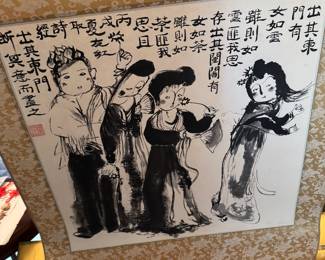 出其東
門有
女如雲
雖則如
雲匪我思
存出其闉闍有
女如荼
雖則如
荼匪我
思且
丙
夏友
取
詩
經
出其東門
意而畫之